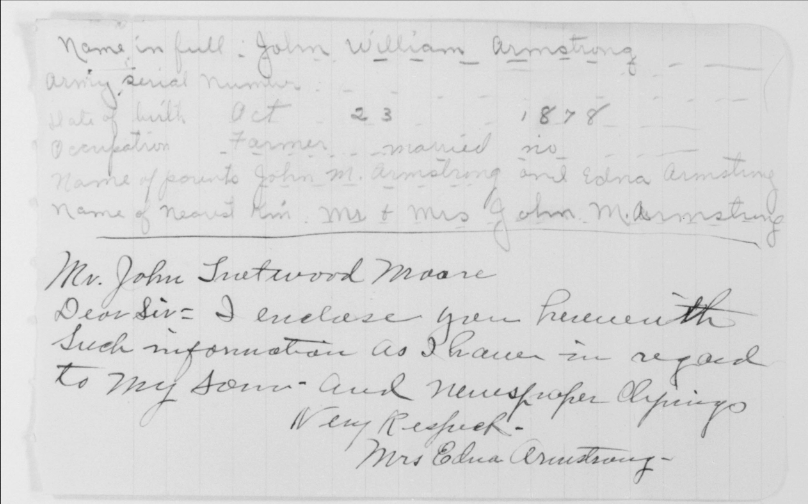 Name in full: John William Armstrong
Army serial number
Date of birth Oct 23 1878
Occupation Farmer married no
Name of parents John M. Armstrong and Edna Armstrong
Name of nearest kin. Mr & Mrs John M. Armstrong
Mr. John Trotwood Moore
Dear Sir = I enclose you herewith
Such information as I have in regard
to my son - and newspaper clipings
Very Respect -
Mrs Edna Armstrong -